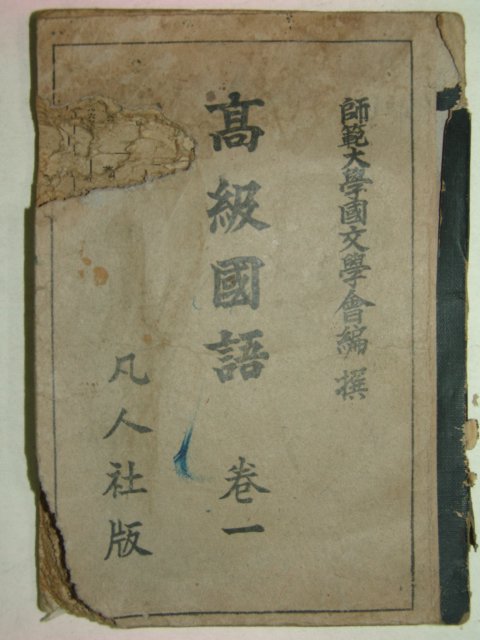 師範大學國文學會編 撰
高級國語 卷一
凡人社版